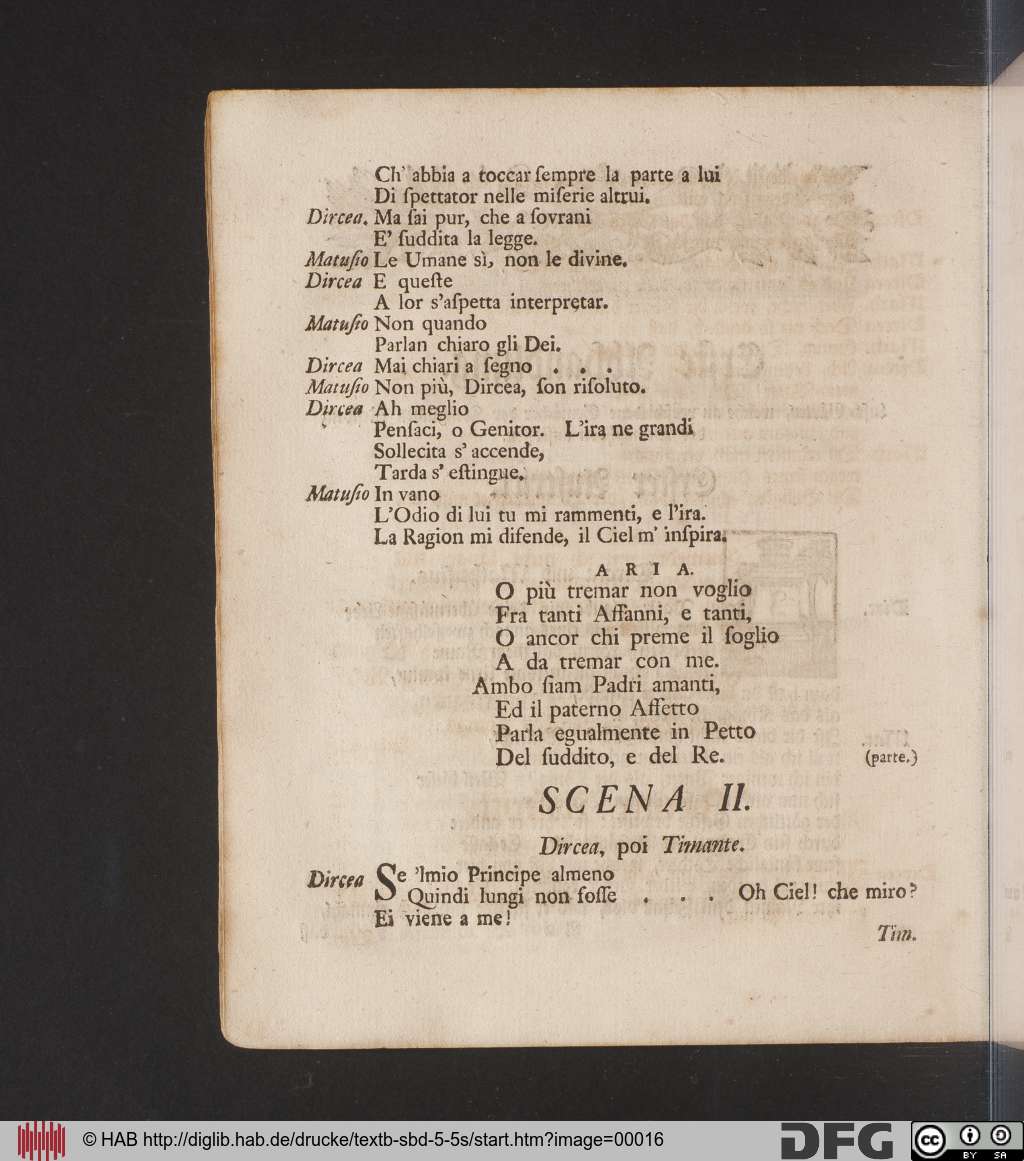 Ch' abbia a toccar ſempre la parte a lui
Di ſpettator nelle miſerie altrui.
Dircea. Ma ſai pur, che a ſovrani
E' ſuddita la legge.
Matuſio Le Umane sì, non le divine.
Dircea E queſte
A lor s'aſpetta interpretar.
Matuſio Non quando
Parlan chiaro gli Dei.
Dircea Mai chiari a ſegno . . .
Matuſio Non più, Dircea, ſon riſoluto.
Dircea Ah meglio
Penſaci, o Genitor. L'ira ne grandi
Sollecita s' accende,
Tarda s' eſtingue.
Matuſio In vano
L'Odio di lui tu mi rammenti, e l'ira.
La Ragion mi difende, il Ciel m' inſpira.
A R I A.
O più tremar non voglio
Fra tanti Affanni, e tanti,
O ancor chi preme il ſoglio
A da tremar con me.
Ambo ſiam Padri amanti,
Ed il paterno Affetto
Parla egualmente in Petto
Del ſuddito, e del Re. (parte.)
SCENA II.
Dircea, poi Timante.
Dircea Se 'lmio Principe almeno
Quindi lungi non foſſe . . . Oh Ciel! che miro?
Ei viene a me!
Tim.
© HAB http://diglib.hab.de/drucke/textb-sbd-5-5s/start.htm?image=00016
DFG
cc BY SA